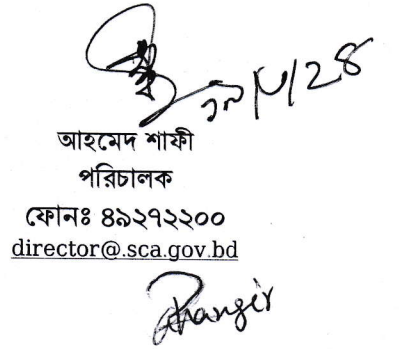 আহমেদ শাফী
পরিচালক
ফোনঃ ৪৯২৭২২০০
director@.sca.gov.bd